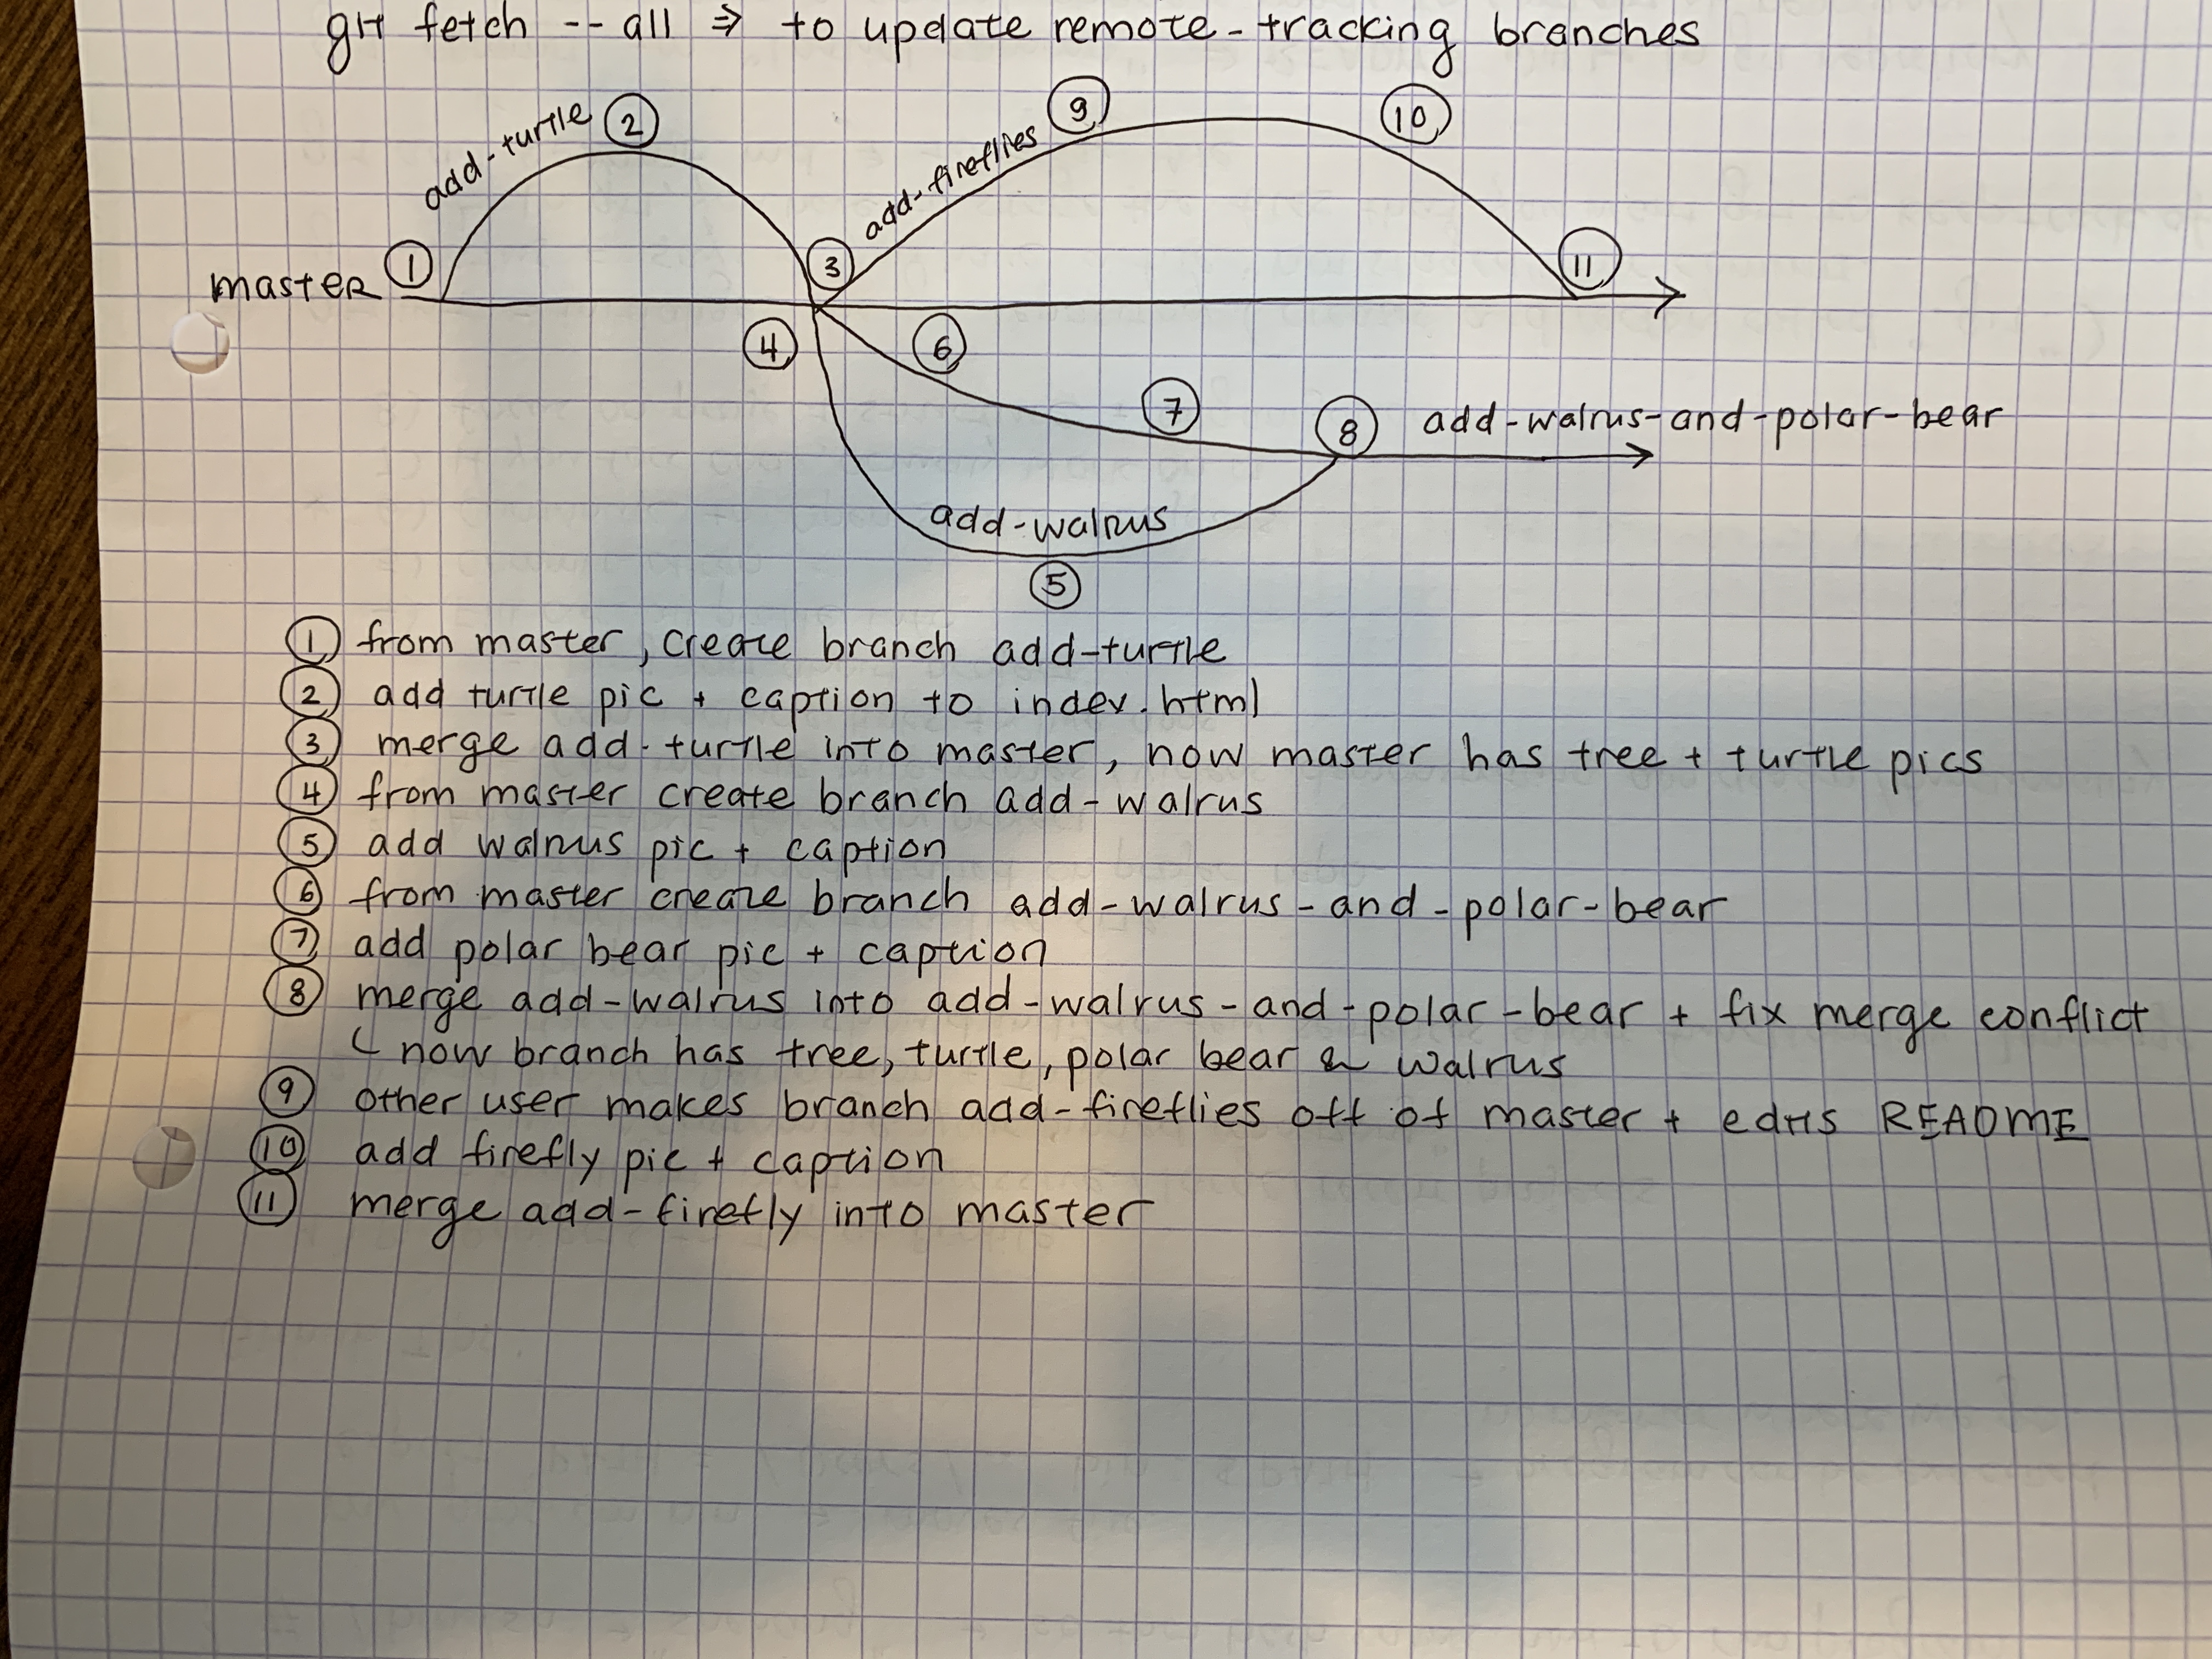 git fetch -- all ⇒ to update remote-tracking branches
add-turtle ②
master ① ③ add-fireflies ⑨ ⑩ ⑪
④ ⑥ ⑦ ⑧ add-walrus-and-polar-bear
add-walrus
⑤
① from master, create branch add-turtle
② add turtle pic + caption to index.html
③ merge add-turtle into master, now master has tree + turtle pics
④ from master create branch add-walrus
⑤ add walrus pic + caption
⑥ from master create branch add-walrus-and-polar-bear
⑦ add polar bear pic + caption
⑧ merge add-walrus into add-walrus-and-polar-bear + fix merge conflict
( now branch has tree, turtle, polar bear & walrus
⑨ other user makes branch add-fireflies off of master + edits README
⑩ add firefly pic + caption
⑪ merge add-firefly into master